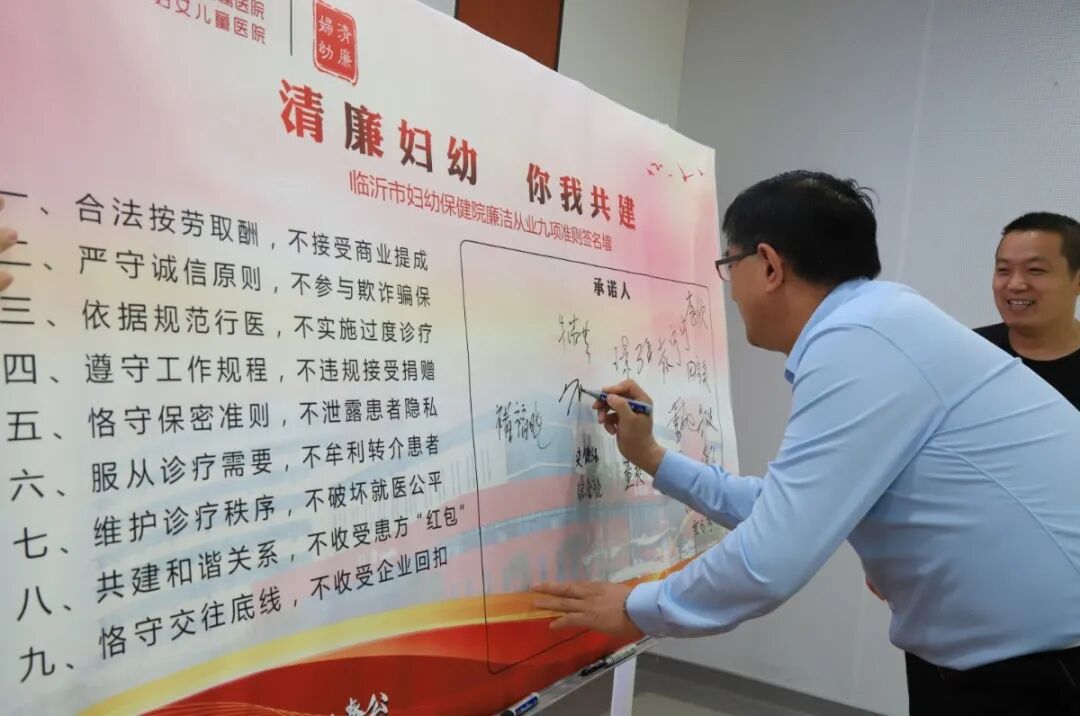 属医院
妇女儿童医院
清廉
婦幼
清廉妇幼 你我共建
临沂市妇幼保健院廉洁从业九项准则签名墙
一、合法按劳取酬，不接受商业提成
二、严守诚信原则，不参与欺诈骗保
三、依据规范行医，不实施过度诊疗
四、遵守工作规程，不违规接受捐赠
五、恪守保密准则，不泄露患者隐私
六、服从诊疗需要，不牟利转介患者
七、维护诊疗秩序，不破坏就医公平
八、共建和谐关系，不收受患方“红包”
九、恪守交往底线，不收受企业回扣
承诺人